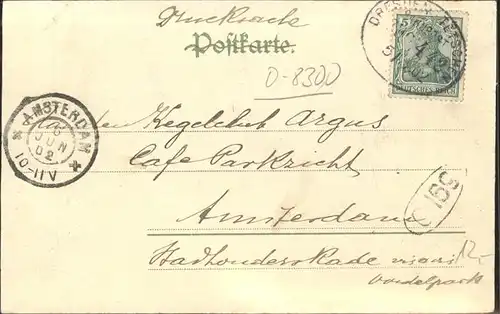 Drucksache
Postkarte.
D-8300
DRESDEN
5
DEUTSCHES REICH
AMSTERDAM
6
JUN
02
10-11V
den Kegelclub Argus
Café Parkzicht
Amsterdam
168
Stadhouderskade
12,-
Vondelpark